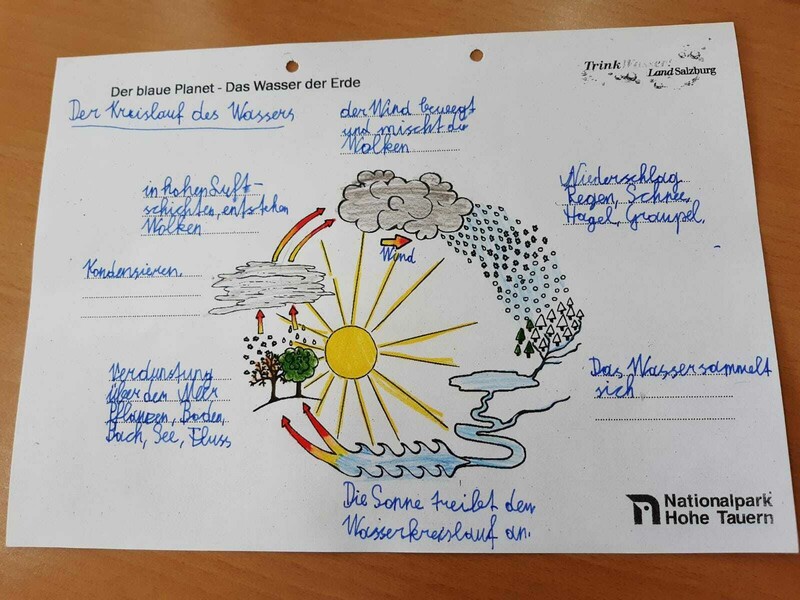 Der blaue Planet - Das Wasser der Erde
TrinkWasser!
Land Salzburg
Der Kreislauf des Wassers
der Wind bewegt
und mischt die
Wolken
in hohen Luft-
schichten, entstehen
Wolken
Niederschlag
Regen, Schnee,
Hagel, Graupel.
Wind
Kondensieren.
Verdunstung
über dem Meer
Pflanzen, Boden,
Bach, See, Fluss
Das Wasser sammelt
sich
Die Sonne treibt den
Wasserkreislauf an.
Nationalpark
Hohe Tauern